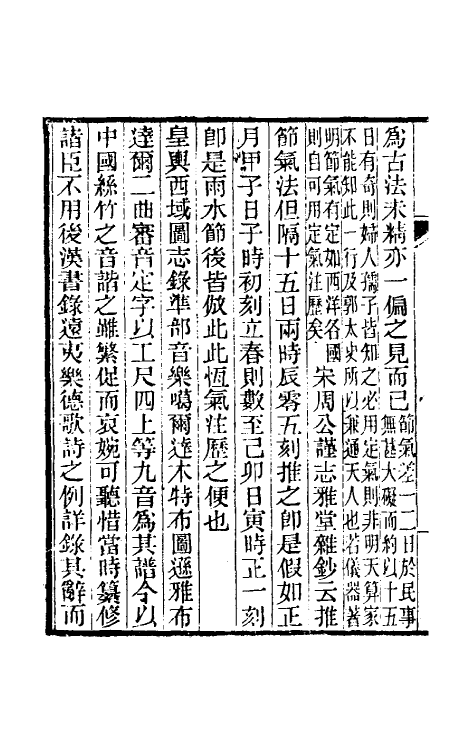 為古法未精亦一偏之見而已節氣差一二日於民事
無甚大礙而約以十五
日有奇則婦人孺子皆知之必用定氣則非明天算家
不能知此一行及郭太史所以兼通天人也若儀器著
明節氣有定如西洋各國
則自可用定氣注歷矣
宋周公謹志雅堂雜鈔云推
節氣法但隔十五日兩時辰零五刻推之卽是假如正
月甲子日子時初刻立春則數至己卯日寅時正一刻
卽是雨水節後皆倣此此恆氣注歷之便也
皇輿西域圖志錄準部音樂噶爾達木特布圖遜雅布
達爾二曲審音定字以工尺四上等九音為其譜今以
中國絲竹之音諧之雖繁促而哀婉可聽惜當時纂修
諸臣不用後漢書錄遠夷樂德歌詩之例詳錄其辭而